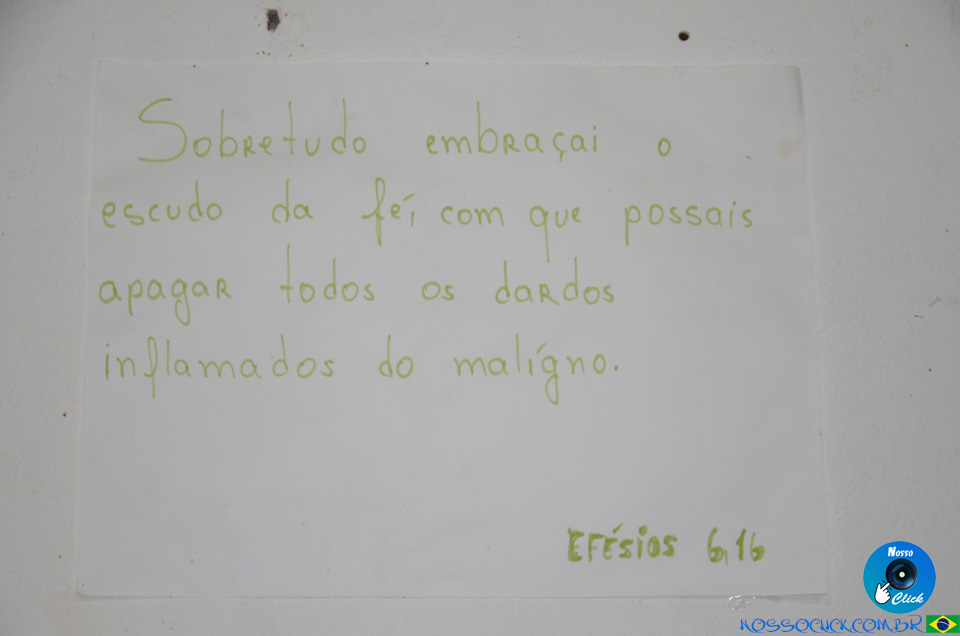 Sobretudo embraçai o
escudo da fé, com que possais
apagar todos os dardos
inflamados do malígno.
EFÉSIOS 6,16
Nosso
Click
NOSSOCLICK.COM.BR